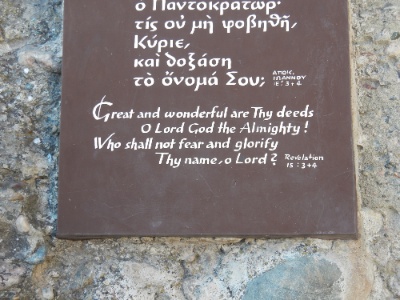 ὁ Παντοκράτωρ·
τίς οὐ μὴ φοβηθῇ,
Κύριε,
καὶ δοξάσῃ
τὸ ὄνομά Σου;
ΑΠΟΚ.
ΙΩΑΝΝΟΥ
ΙΕ: 3+4
Great and wonderful are Thy deeds
O Lord God the Almighty!
Who shall not fear and glorify
Thy name, o Lord?
Revelation
15:3+4